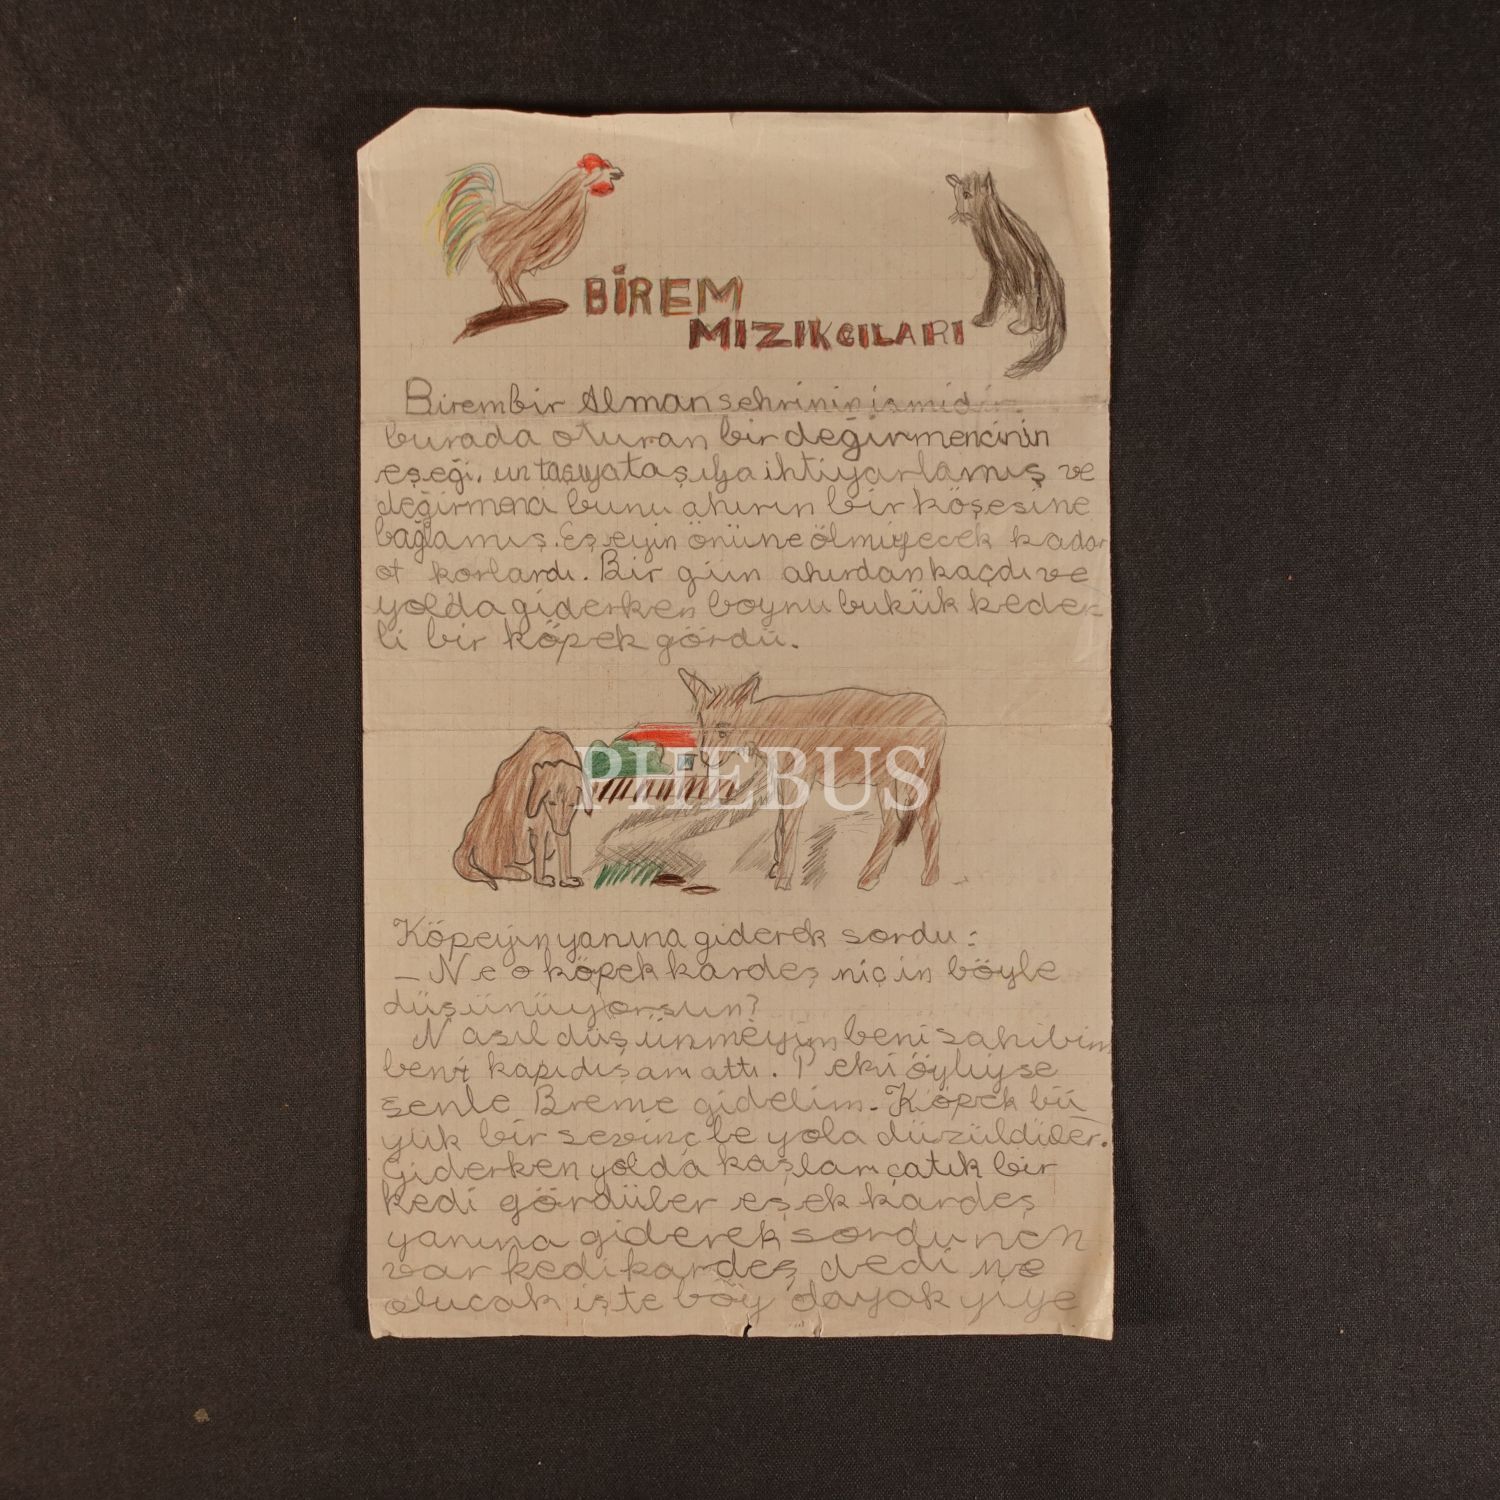 BİREM
MIZIKCILARI
Birem bir Alman sehrinin ismidir
burada oturan bir değirmencinin
eşeği, un taşıya taşıya ihtiyarlamış ve
değirmenci bunu ahırın bir köşesine
bağlamış. Eşeyin önüne ölmiyecek kadar
ot korlardı. Bir gün ahırdan kaçdı ve
yolda giderken boynu bukük keder-
li bir köpek gördü.
PHEBUS
Köpeyin yanına giderek sordu:
– Ne o köpek kardeş niçin böyle
düşünüyorsun?
Nasıl düşünmeyim beni sahibim
beni kapıdışarı attı. Peki öyliyse
senle Breme gidelim. Köpek bü
yük bir sevinçle yola düzüldiler.
Giderken yolda kaşları çatık bir
kedi gördüler eşek kardeş
yanına giderek sordu nen
var kedi kardeş dedi ne
olucak işte böy dayak yiye